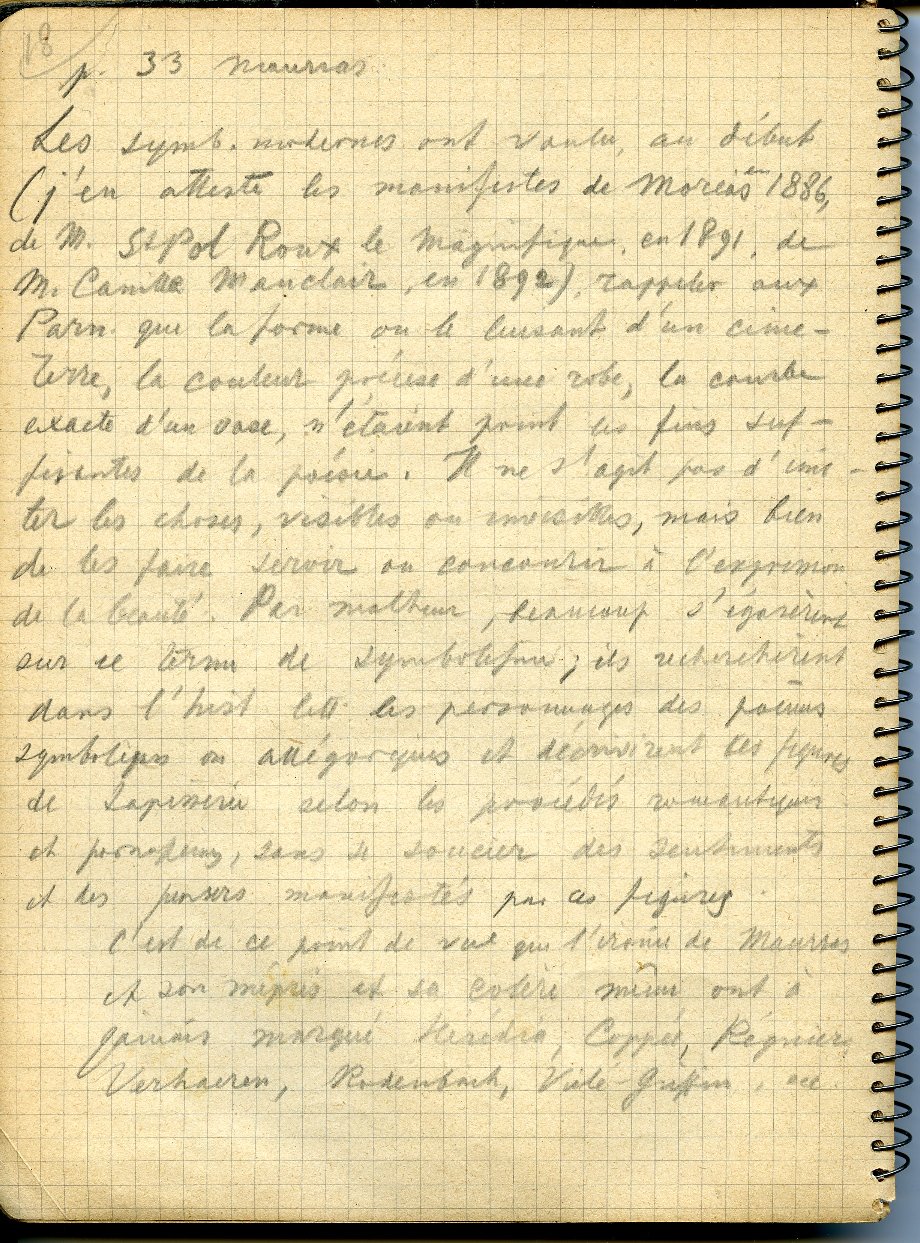 18
p. 33 Maurras
Les symb. modernes ont voulu, au début
(j'en atteste les manifestes de Moréas 1886,
de M. St Pol Roux le Magnifique, en 1891, de
M. Camille Mauclair, en 1892), rappeler aux
Parn. que la forme ou le luisant d'un cime-
terre, la couleur précise d'une robe, la courbe
exacte d'un vase, n'étaient point les fins suf-
fisantes de la poésie. Il ne s'agit pas d'imi-
ter les choses, visibles ou invisibles, mais bien
de les faire servir ou concourir à l'expression
de la beauté. Par malheur, beaucoup s'égarèrent
sur ce terme de symbolisme; ils recherchèrent
dans l'hist litt les personnages des poèmes
symboliques ou allégoriques et décrivirent ces figures
de tapisserie selon les procédés romantiques
et parnassiens, sans se soucier des sentiments
et des pensers manifestés par ces figures.
C'est de ce point de vue que l'ironie de Maurras
et son mépris et sa colère même ont à
jamais marqué Hérédia, Coppée, Régnier,
Verhaeren, Rodenbach, Vielé-Griffin,